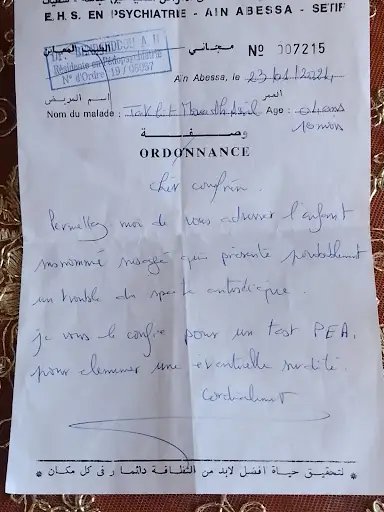 E.H.S. EN PSYCHIATRIE - AIN ABESSA - SETIF
مجاني
N° 007215
Résidente en Pédopsychiatrie
N° d'Ordre 19 / 05957
Ain Abessa, le 23/01/2021
إسم المريض
العمر
Nom du malade : Age : 04 ans
10 mois
وصفة
ORDONNANCE
cher confrère.
Permettez moi de vous adresser l'enfant
susnommé âgé qui présente probablement
un trouble du spectre autistique.
je vous le confie pour un test PEA,
pour éliminer une éventuelle surdité.
Cordialement
* لتحقيق حياة أفضل لابد من النظافة دائما و في كل مكان *